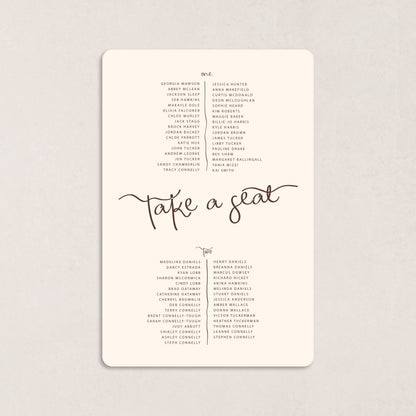 one
GEORGIA MAWSON
ABBEY MCLEAN
JACKSON SLEEP
SEB HAWKINS
MAKAYLE DOLE
OLIVIA FALCONER
CHLOE MURLEY
JACK STAGG
BROCK HARVEY
JORDAN BUCKBY
CHLOE PARROTT
KATIE HUS
JOHN TUCKER
ANDREW LEORKE
JEN TUCKER
SANDY CHAMBERLIN
TRACY CONNELLY
JESSICA HUNTER
ANNA WAKEFIELD
CURTIS MCDONALD
DEON MCLOUGHLAN
SOPHIE HEARD
KIM ROBERTS
MAGGIE BAKER
BILLIE-JO HARRIS
KYLE HARRIS
JORDAN BROWN
JAMES TUCKER
LIBBY TUCKER
PAULINE DRAKE
BEE SHAW
MARGARET BALLINGALL
TANIA MIZZI
KAI SMITH
take a seat
two
MADELINE DANIELS
DARCY ESTRADA
RYAN LUBB
SHARON MCCORMICK
CINDY LUBB
BRAD GATAWAY
CATHERINE GATAWAY
CHERRYL BROWNLIE
DEB CONNELLY
TERRY CONNELLY
BRENT CONNELLY-TOUGH
SARAH CONNELLY-TOUGH
JUDY ABBOTT
SHIRLEY CONNELLY
ASHLEY CONNELLY
STEPH CONNELLY
HENRY DANIELS
BREANNA DANIELS
MARCUS DOWSEY
RICHARD HICKEY
ANINA HAWKINS
MELINDA DANIELS
STUART DANIELS
JESSICA ANDERSON
AMBER WALLACE
DONNA WALLACE
VICTOR TUCKERMAN
HEATHER TUCKERMAN
THOMAS CONNELLY
LEANNE CONNELLY
STEPHEN CONNELLY